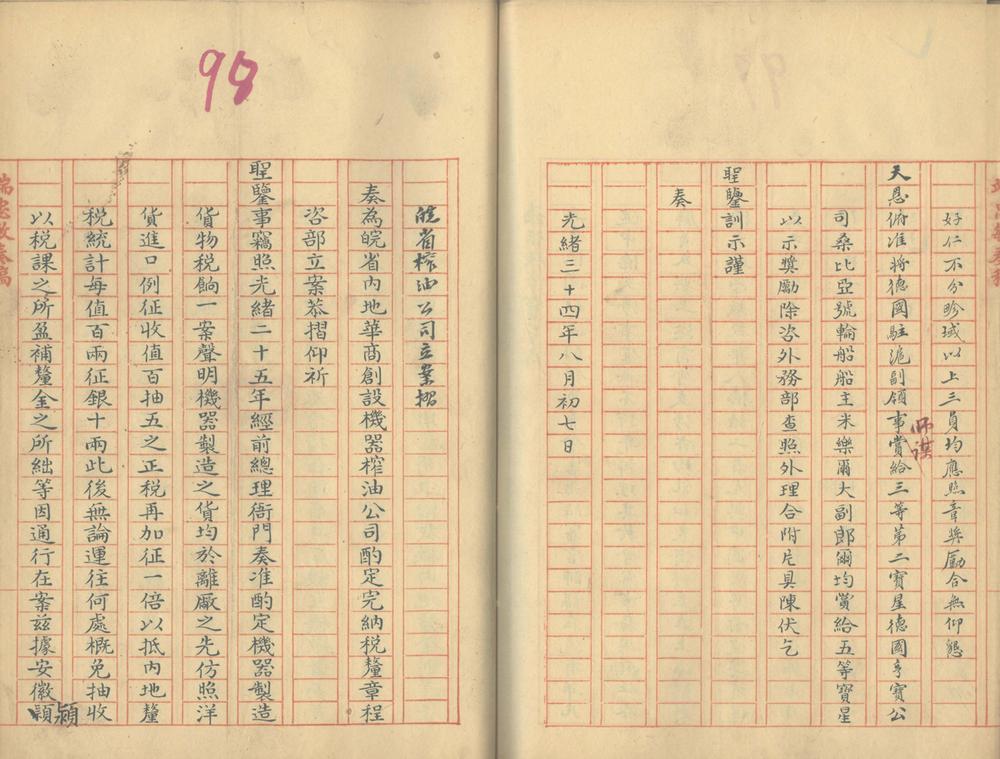 好仁不分畛域以上三員均應照章奬勵合無仰懇
天恩俯准將德國駐滬副領事師謨賞給三等第二寶星德國亨寶公
司桑比亞號輪船船主米樂爾大副郎爾均賞給五等寶星
以示奬勵除咨外務部查照外理合附片具陳伏乞
聖鑒訓示謹
奏
光緒三十四年八月初七日
98
皖省榨油公司立案摺
奏為皖省內地華商創設機器榨油公司酌定完納税釐章程
咨部立案恭摺仰祈
聖鑒事竊照光緒二十五年經前總理衙門奏准酌定機器製造
貨物税餉一案聲明機器製造之貨均於離廠之先仿照洋
貨進口例征收值百抽五之正税再加征一倍以抵內地釐
税統計每值百兩征銀十兩此後無論運往何處概免抽收
以税課之所盈補釐金之所絀等因通行在案茲據安徽潁
端忠敏奏稿